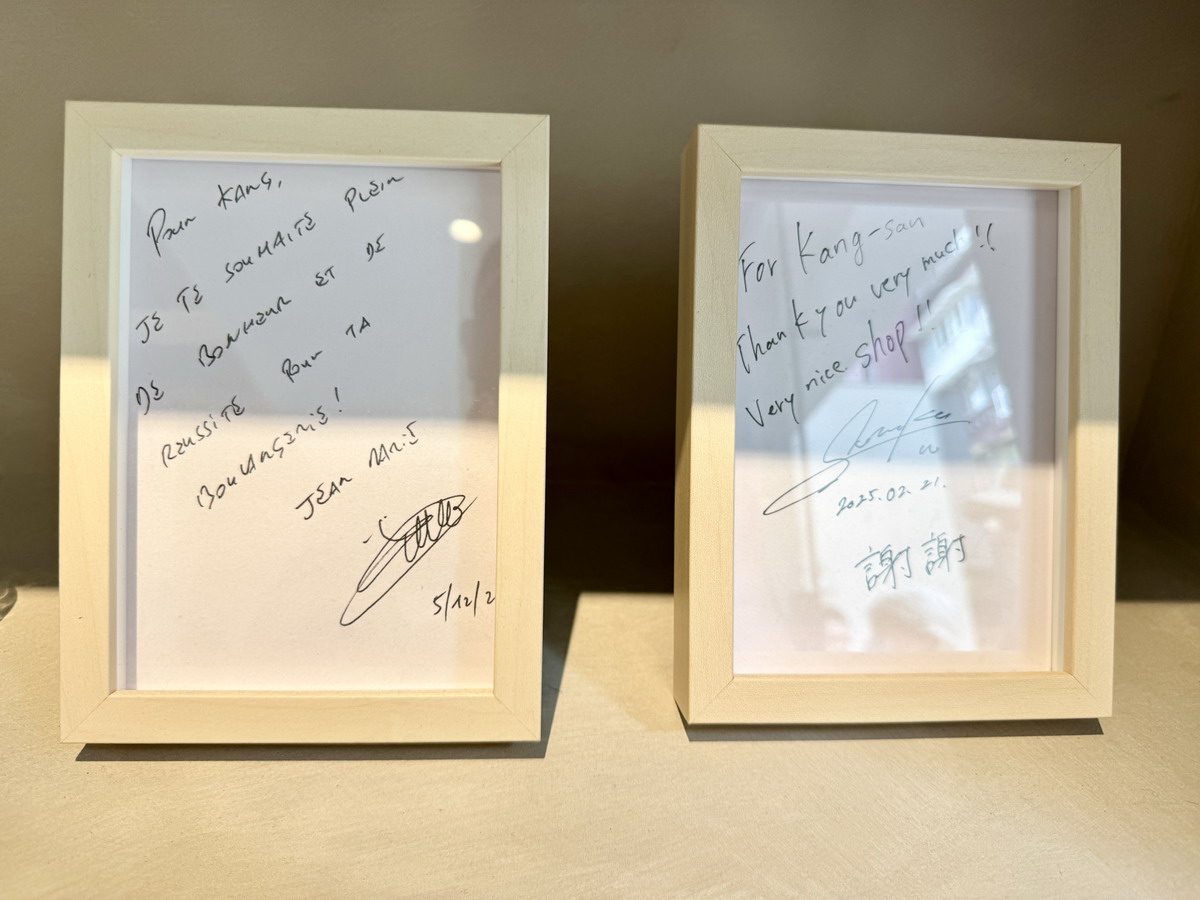 Pour KANG,
JE TE SOUHAITE PLEIN
DE BONHEUR ET DE
RÉUSSITE POUR TA
BOULANGERIE!
JEAN MARIE
5/12/2
For Kang-san
Thank you very much!!
Very nice shop!!
2025.02.21.
謝謝